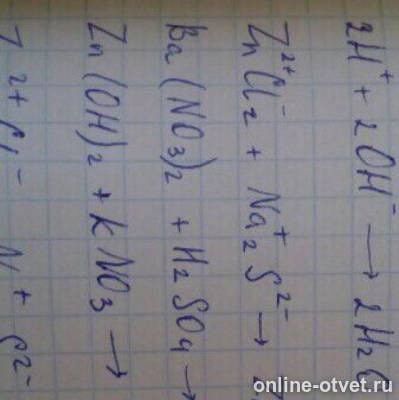 2H⁺ + 2OH⁻ → 2H₂O
Zn²⁺Cl₂⁻ + Na₂⁺S²⁻ →
Ba(NO₃)₂ + H₂SO₄ →
Zn(OH)₂ + KNO₃ →
online-otvet.ru